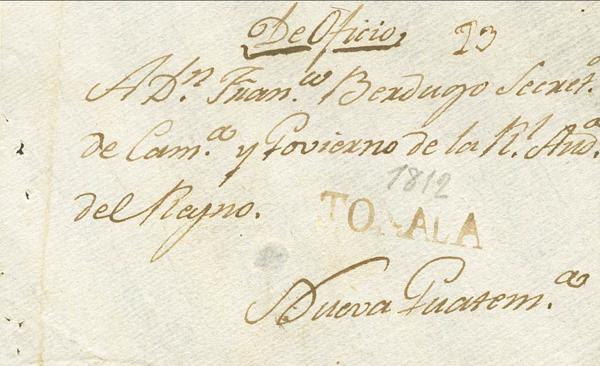 De Oficio, 23
A Dn. Franco. Berdugo Secreto.
de Cama. y Govierno de la Rl. Auda.
del Reyno.
1812
TONALA
Nueva Guatema.